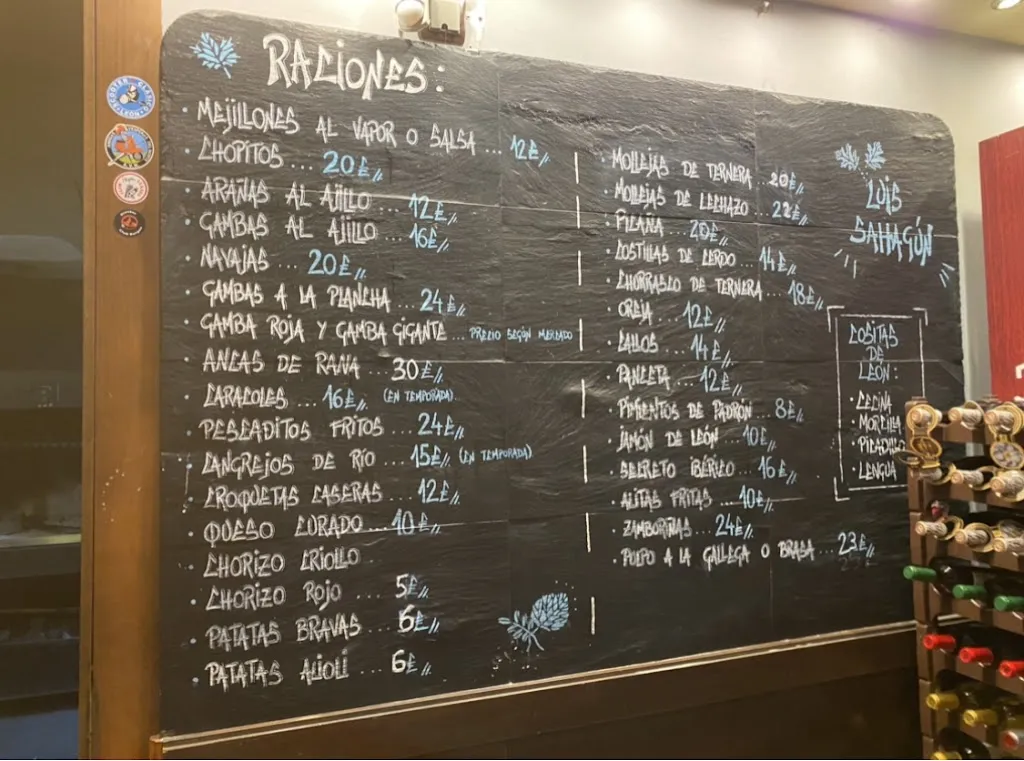 RACIONES:
· MEJILLONES AL VAPOR O SALSA ... 12€,,
· CHOPITOS ... 20€,,
· ARAÑAS AL AJILLO ... 12€,,
· GAMBAS AL AJILLO ... 16€,,
· NAVAJAS ... 20€,,
· GAMBAS A LA PLANCHA ... 24€,,
· GAMBA ROJA Y GAMBA GIGANTE ... PRECIO SEGÚN MERCADO
· ANCAS DE RANA ... 30€,,
· CARACOLES ... 16€,, (EN TEMPORADA)
· PESCADITOS FRITOS ... 24€,,
· CANGREJOS DE RÍO ... 15€,, (EN TEMPORADA)
· CROQUETAS CASERAS ... 12€,,
· QUESO CURADO ... 10€,,
· CHORIZO CRIOLLO
· CHORIZO ROJO ... 5€,,
· PATATAS BRAVAS ... 6€,,
· PATATAS ALIOLI ... 6€,,
· MOLLEJAS DE TERNERA ... 20€,,
· MOLLEJAS DE LECHAZO ... 22€,,
· PICAÑA ... 20€,,
· COSTILLAS DE CERDO ... 14€,,
· CHURRASCO DE TERNERA ... 18€,,
· OREJA ... 12€,,
· CALLOS ... 14€,,
· PANCETA ... 12€,,
· PIMIENTOS DE PADRÓN ... 8€,,
· JAMÓN DE LEÓN ... 10€,,
· SECRETO IBÉRICO ... 16€,,
· ALITAS FRITAS ... 10€,,
· ZAMBORIÑAS ... 24€,,
· PULPO A LA GALLEGA O BRASA ... 23€,,
LOIS
SAHAGÚN
COSITAS
DE
LEÓN:
· CECINA
· MORCILLA
· PICADILLO
· LENGUA